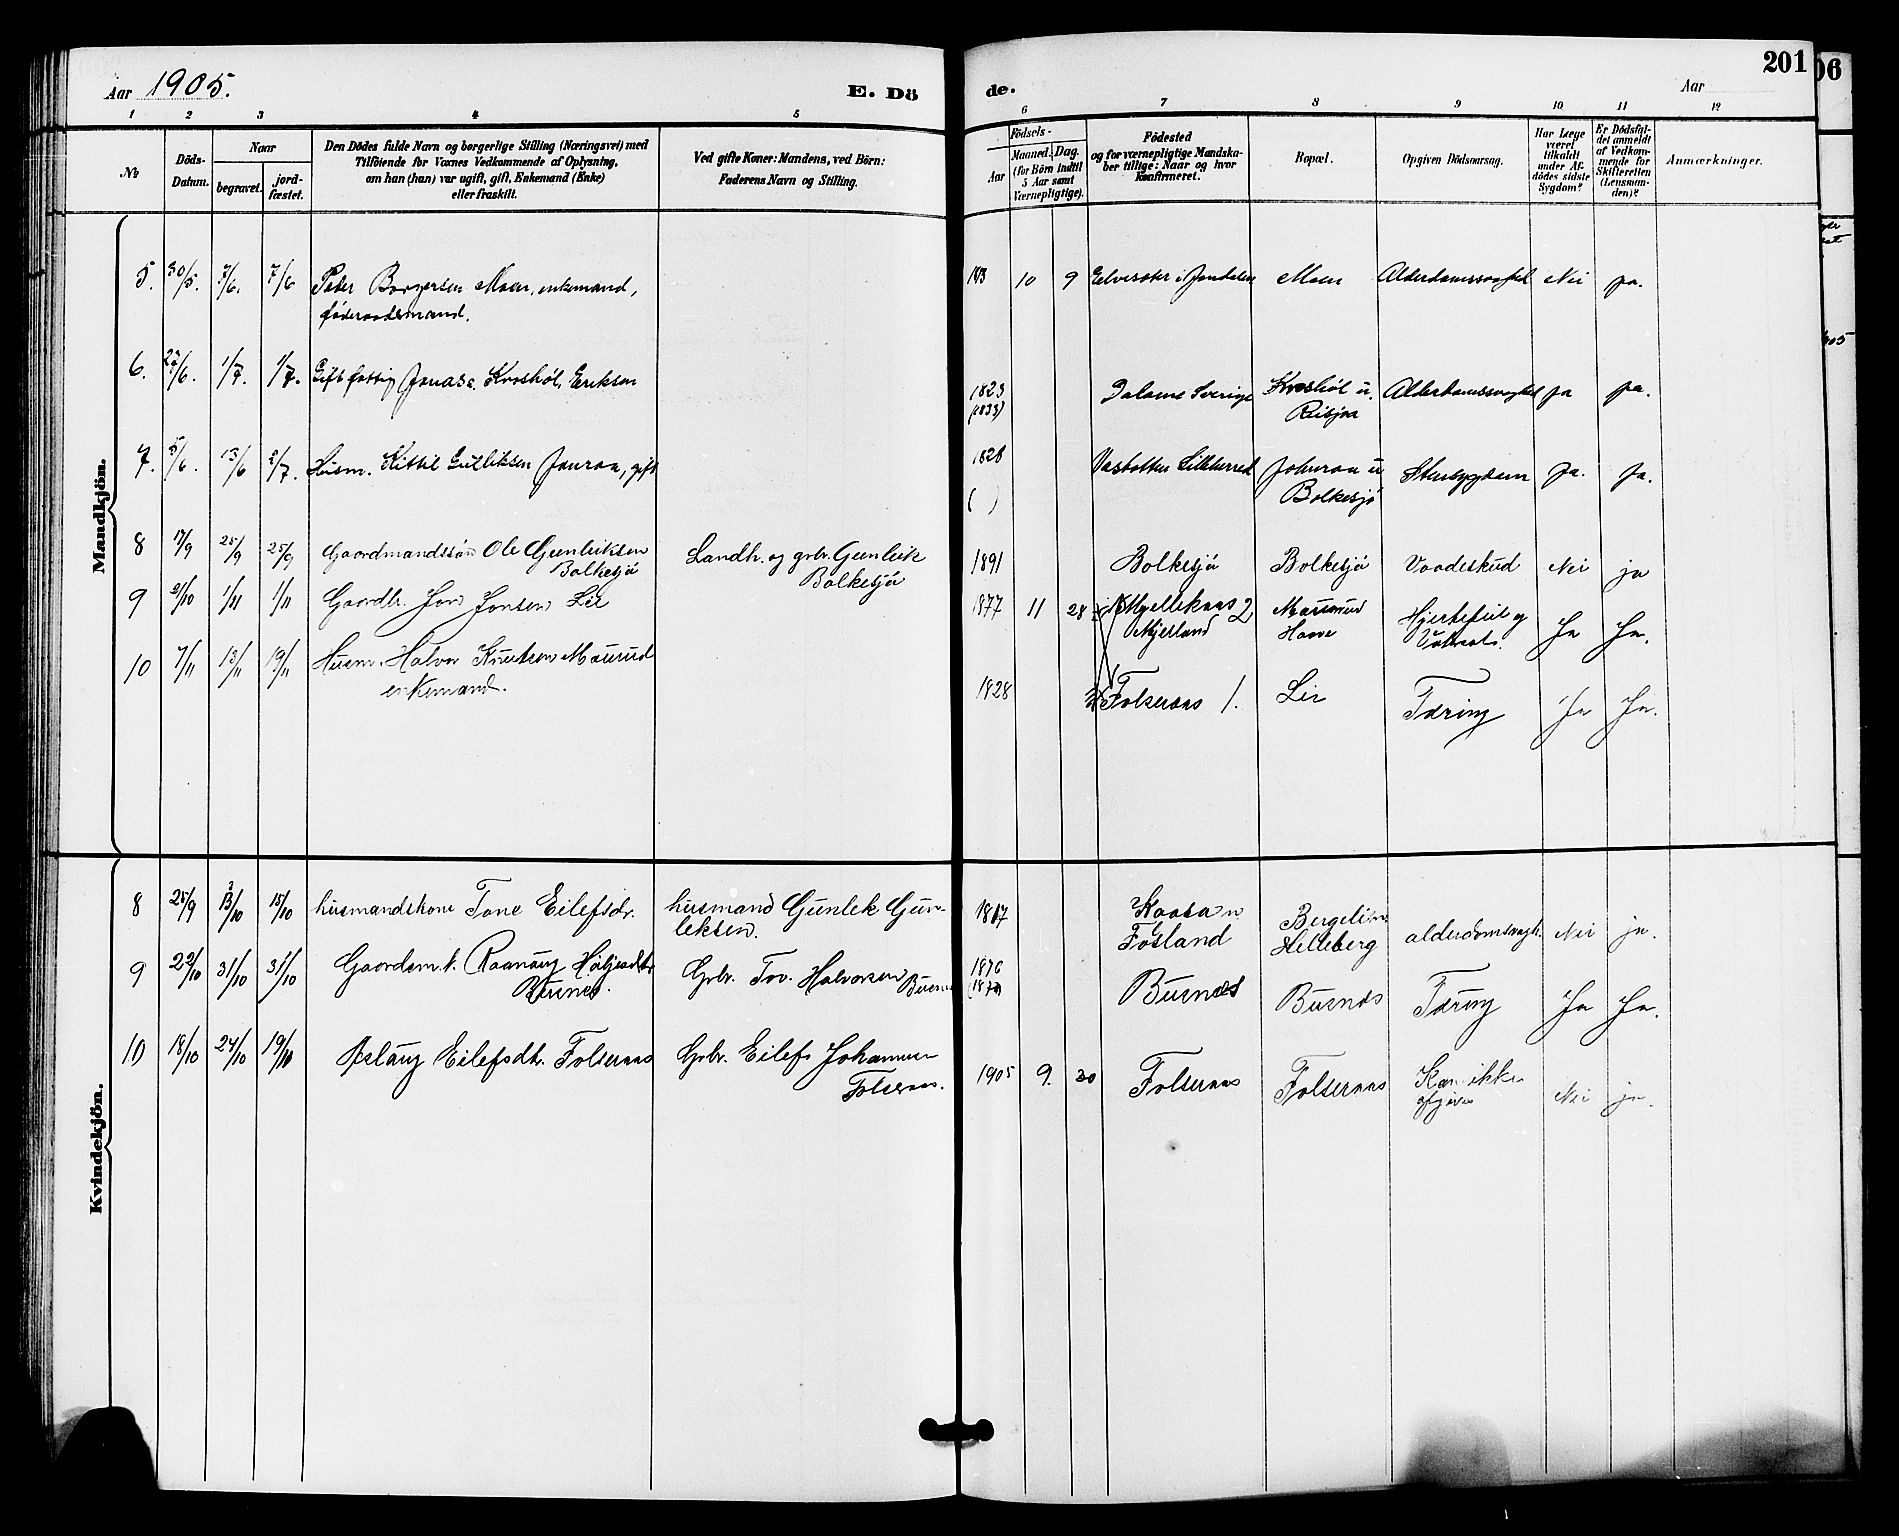 Aar 1905.
E. Dö
de.
Aar
201
06
1 2 3 4 5 6 7 8 9 10 11 12
№
Döds-Datum.
Naar
begravet.
jord-fæstet.
Den Dödes fulde Navn og borgerlige Stilling (Næringsvei) med
Tilföiende for Voxnes Vedkommende af Oplysning,
om han (hun) var ugift, gift, Enkemand (Enke)
eller fraskilt.
Ved gifte Koner: Mandens, ved Börn:
Faderens Navn og Stilling.
Födsels-
Aar
Maaned. Dag.
(for Börn indtil
5 Aar samt
Værnepligtige).
Födested
og for værnepligtige Mandska-
ber tillige: Naar og hvor
konfirmeret.
Bopæl.
Opgiven Dödsaarsag.
Har Læge
været
tilkaldt
under Af-
dödes sidste
Sygdom?
Er Dödsfal-
det anmeldt
af Vedkom-
mende for
Skifteretten
(Lensman-
den)?
Anmærkninger.
Mandkjön.
5. 30/5. 7/6. 7/6 Peter Borgersen Moen, enkemand,
föderaadsmand.
183 10 9 i Jondalen Moen Nei ja.
6. 27/6. 1/7. 1/7. Gift fattig Jonas Eriksen
1823
(1833)
Sverige Alderdomssvaghed ja ja.
7. 5/6. 13/6 2/7. Husm. Kittil Gulliksen gift
1828
( )
Bolkesjö ja. ja.
8 17/9 25/9 25/9 Gaardmandssön Ole Gunleiksen
Bolkesjö
Landh. og grbr. Gunleik
Bolkesjö
1891 Bolkesjö Bolkesjö Vaadeskud Nei ja
9 2/10 1/11 1/11 Gaardbr. Jon Jonsen Lie
1877 11 28 2
Hjertefeil og
Ja Ja.
10 7/11 13/11 19/11 Husm. Halvor Knutsen Maurud
enkemand.
1828 Folseraas 1. Lie Tæring Ja Ja.
Kvindekjön.
8 25/9 13/10 15/10 husmandskone Tone Eilefsdr. husmand Gunlek Gun-
leksen.
1817 Kaasa n
Fosland
Helleberg alderdomsvagh. Nei ja.
9 22/10 31/10 31/10 Gaardm.k. Raanaug
Busnes.
Grbr. Tov Halvorsen Busnes
1876
Busnes Busnes Tæring Ja Ja.
10 18/10 24/10 19/10 Aslaug Eilefsdtr. Folseraas Grbr. Eilef Johannesen
Folseraas.
1905 9. 20 Folseraas Folseraas Kan ikke
opgives
Nei ja.